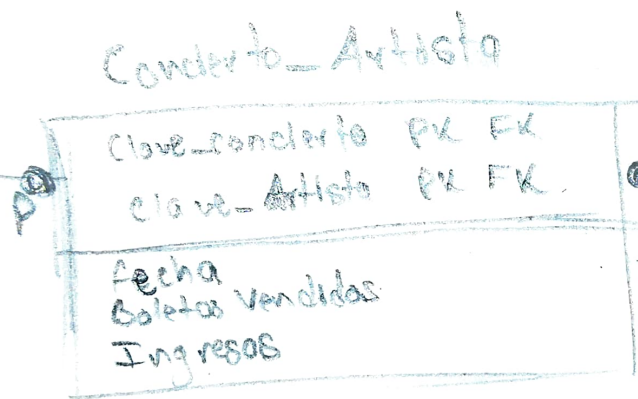 Concierto_Artista
Clave_concierto PK FK
clave_Artista PK FK
P
fecha
Boletos vendidos
Ingresos